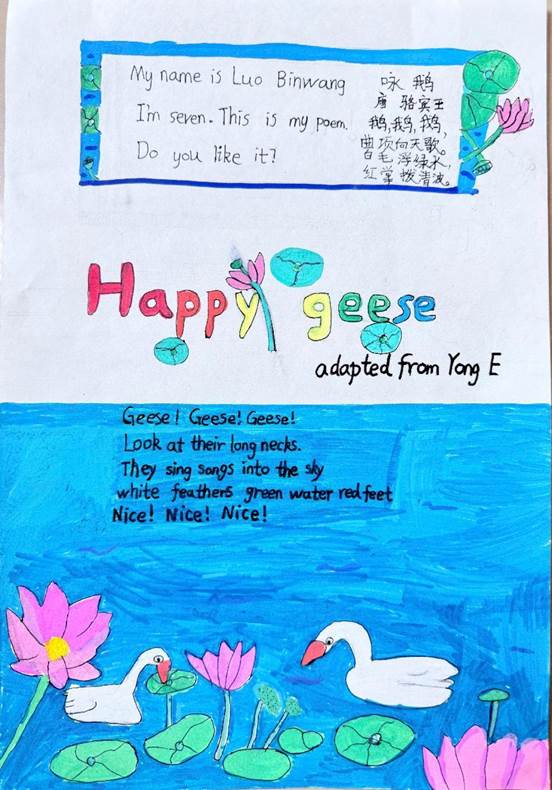 My name is Luo Binwang
I'm seven. This is my poem.
Do you like it?
咏 鹅
唐 骆宾王
鹅,鹅,鹅,
曲项向天歌。
白毛浮绿水,
红掌拨清波。
Happy geese
adapted from Yong E
Geese! Geese! Geese!
Look at their long necks.
They sing songs into the sky
white feathers green water red feet
Nice! Nice! Nice!